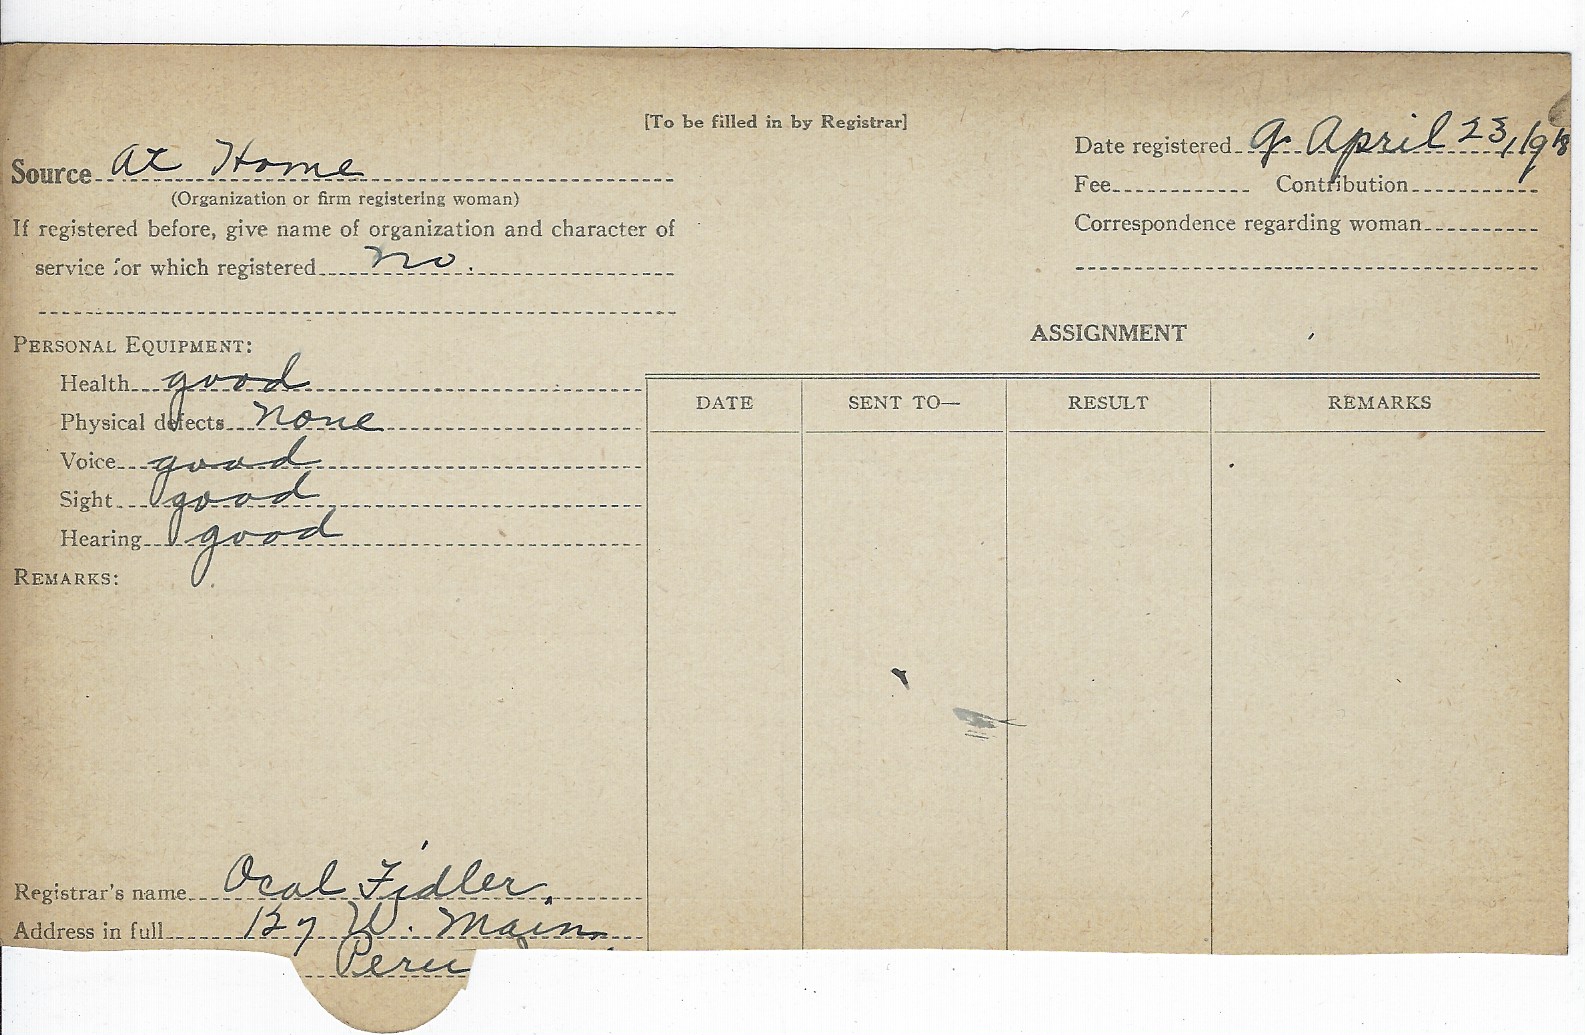 [To be filled in by Registrar]
Source At Home
(Organization or firm registering woman)
If registered before, give name of organization and character of
service for which registered no.
Date registered April 23, 1918
Fee Contribution
Correspondence regarding woman
PERSONAL EQUIPMENT:
Health good
Physical defects None
Voice good
Sight good
Hearing good
REMARKS:
ASSIGNMENT
DATE SENT TO— RESULT REMARKS
Registrar's name Ocal Fidler,
Address in full 127 W. Main
Peru